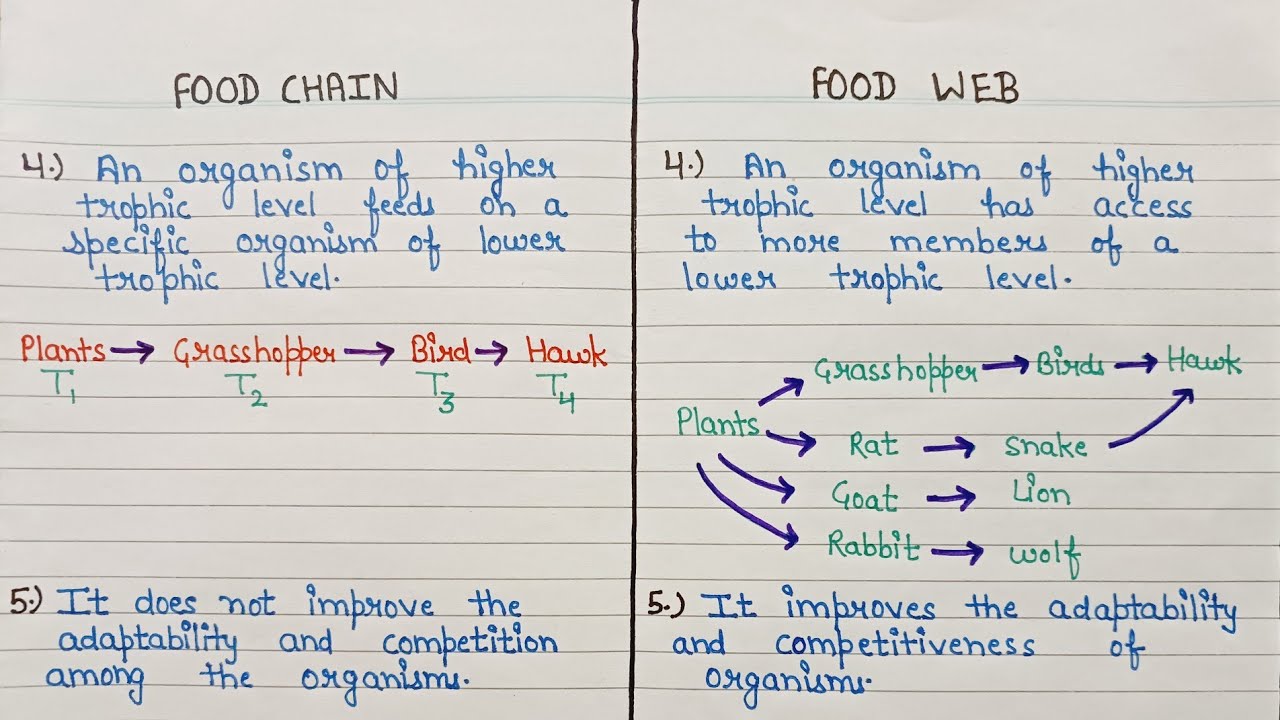 FOOD CHAIN
4.) An organism of higher
trophic level feeds on a
specific organism of lower
trophic level.
Plants → Grasshopper → Bird → Hawk
T1 T2 T3 T4
5.) It does not improve the
adaptability and competition
among the organisms.
FOOD WEB
4.) An organism of higher
trophic level has access
to more members of a
lower trophic level.
Grasshopper → Birds → Hawk
Plants
Rat → Snake
Goat → Lion
Rabbit → wolf
5.) It improves the adaptability
and competitiveness of
organisms.